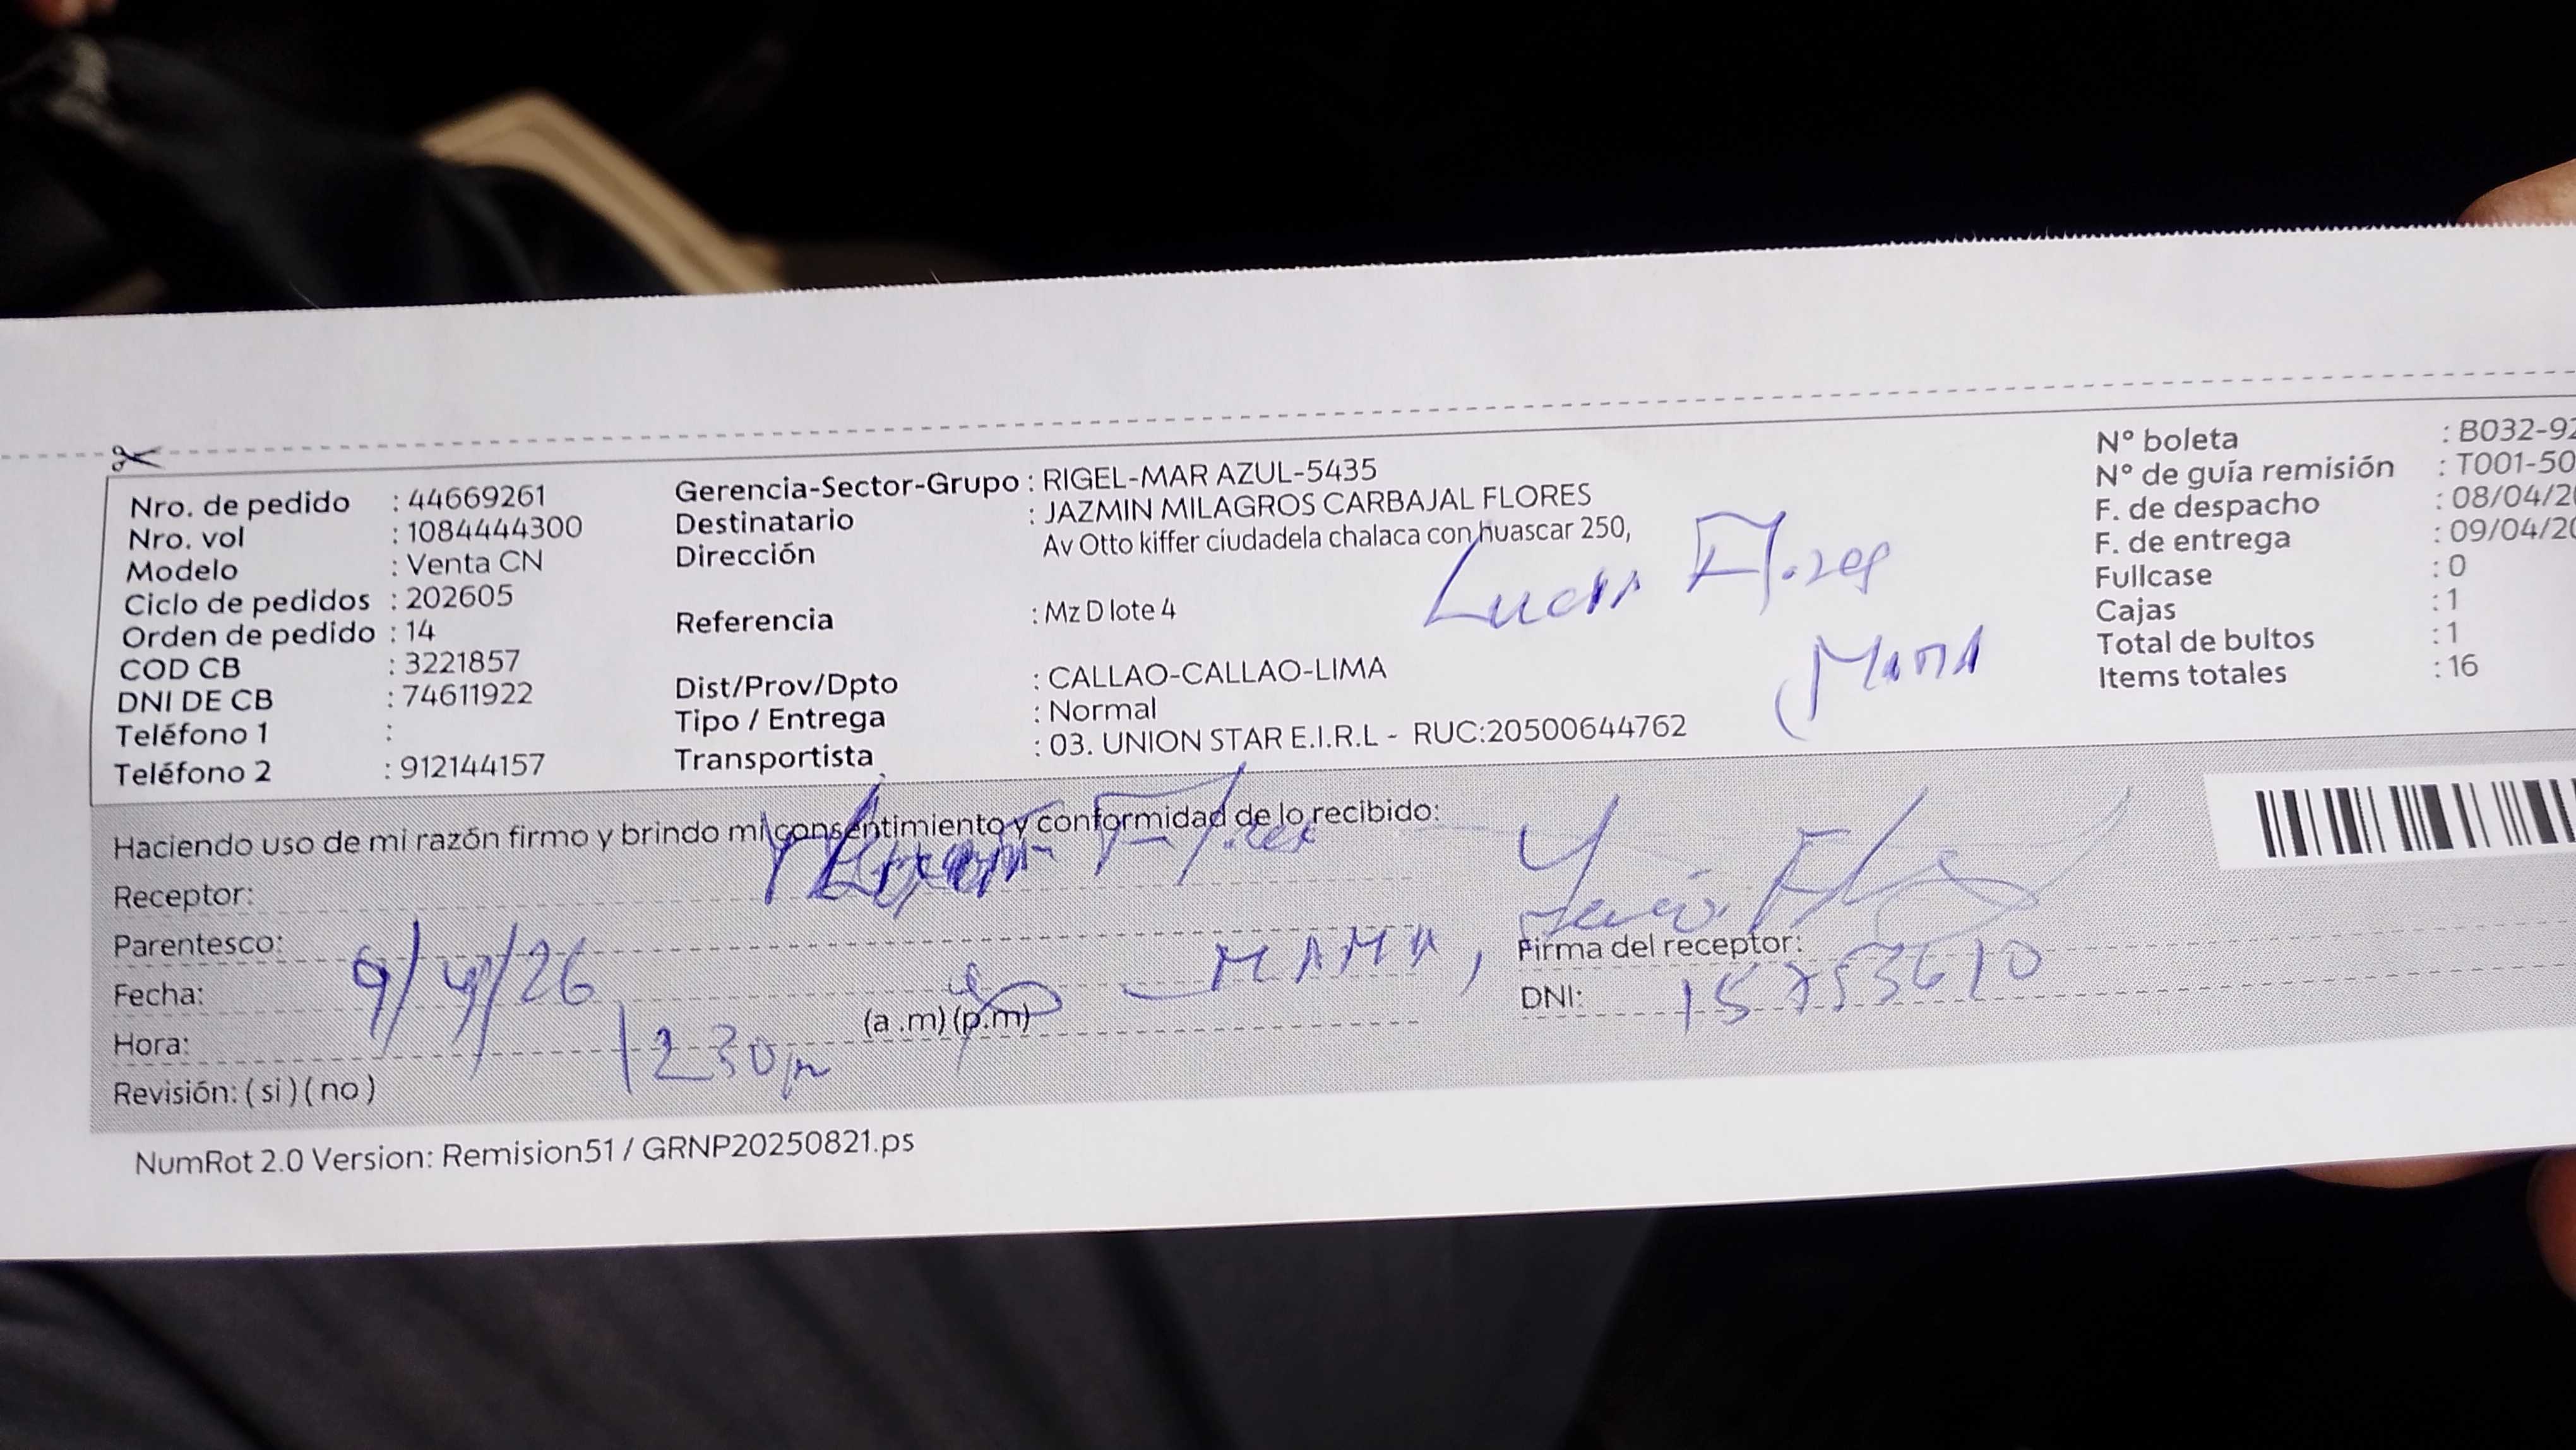 Nro. de pedido : 44669261
Nro. vol : 1084444300
Modelo : Venta CN
Ciclo de pedidos : 202605
Orden de pedido : 14
COD CB : 3221857
DNI DE CB : 74611922
Teléfono 1 :
Teléfono 2 : 912144157
Gerencia-Sector-Grupo : RIGEL-MAR AZUL-5435
Destinatario : JAZMIN MILAGROS CARBAJAL FLORES
Dirección Av Otto kiffer ciudadela chalaca con huascar 250,
Referencia : Mz D lote 4
Dist/Prov/Dpto : CALLAO-CALLAO-LIMA
Tipo / Entrega : Normal
Transportista : 03. UNION STAR E.I.R.L - RUC:20500644762
Flores
Mama
N° boleta : B032-92
N° de guía remisión : T001-50
F. de despacho : 08/04/20
F. de entrega : 09/04/20
Fullcase : 0
Cajas : 1
Total de bultos : 1
Items totales : 16
Haciendo uso de mi razón firmo y brindo mi consentimiento y conformidad de lo recibido:
Receptor: Flores
Parentesco: MAMA
Fecha: 9/4/26
Hora: 1230pm (a .m) (p.m)
Revisión: ( si ) ( no )
Firma del receptor:
DNI: 15753610
NumRot 2.0 Version: Remision51 / GRNP20250821.ps